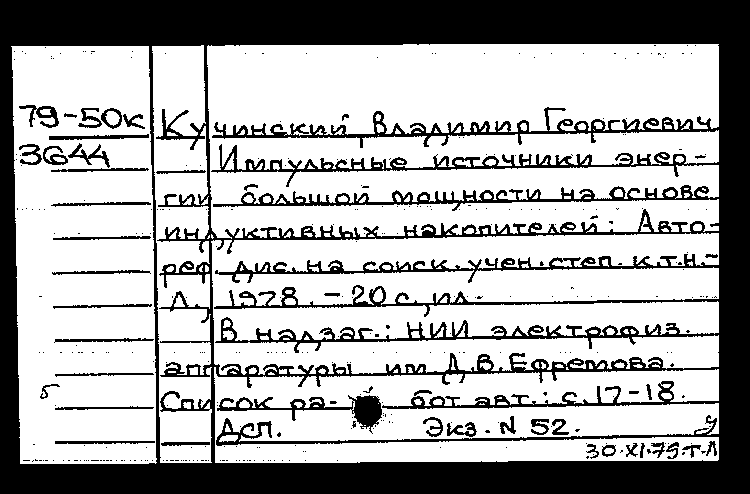 79-50к Кучинский, Владимир Георгиевич
3644 Импульсные источники энер-
гии большой мощности на основе
индуктивных накопителей: Авто-
реф. дис. на соиск. учен. степ. к.т.н.-
Л., 1978. - 20 с., ил.
В надзаг.: НИИ электрофиз.
аппаратуры им Д.В. Ефремова.
Список ра- бот авт.: с. 17-18.
Дсп. Экз. N 52.
30.XI.79.Т-Л